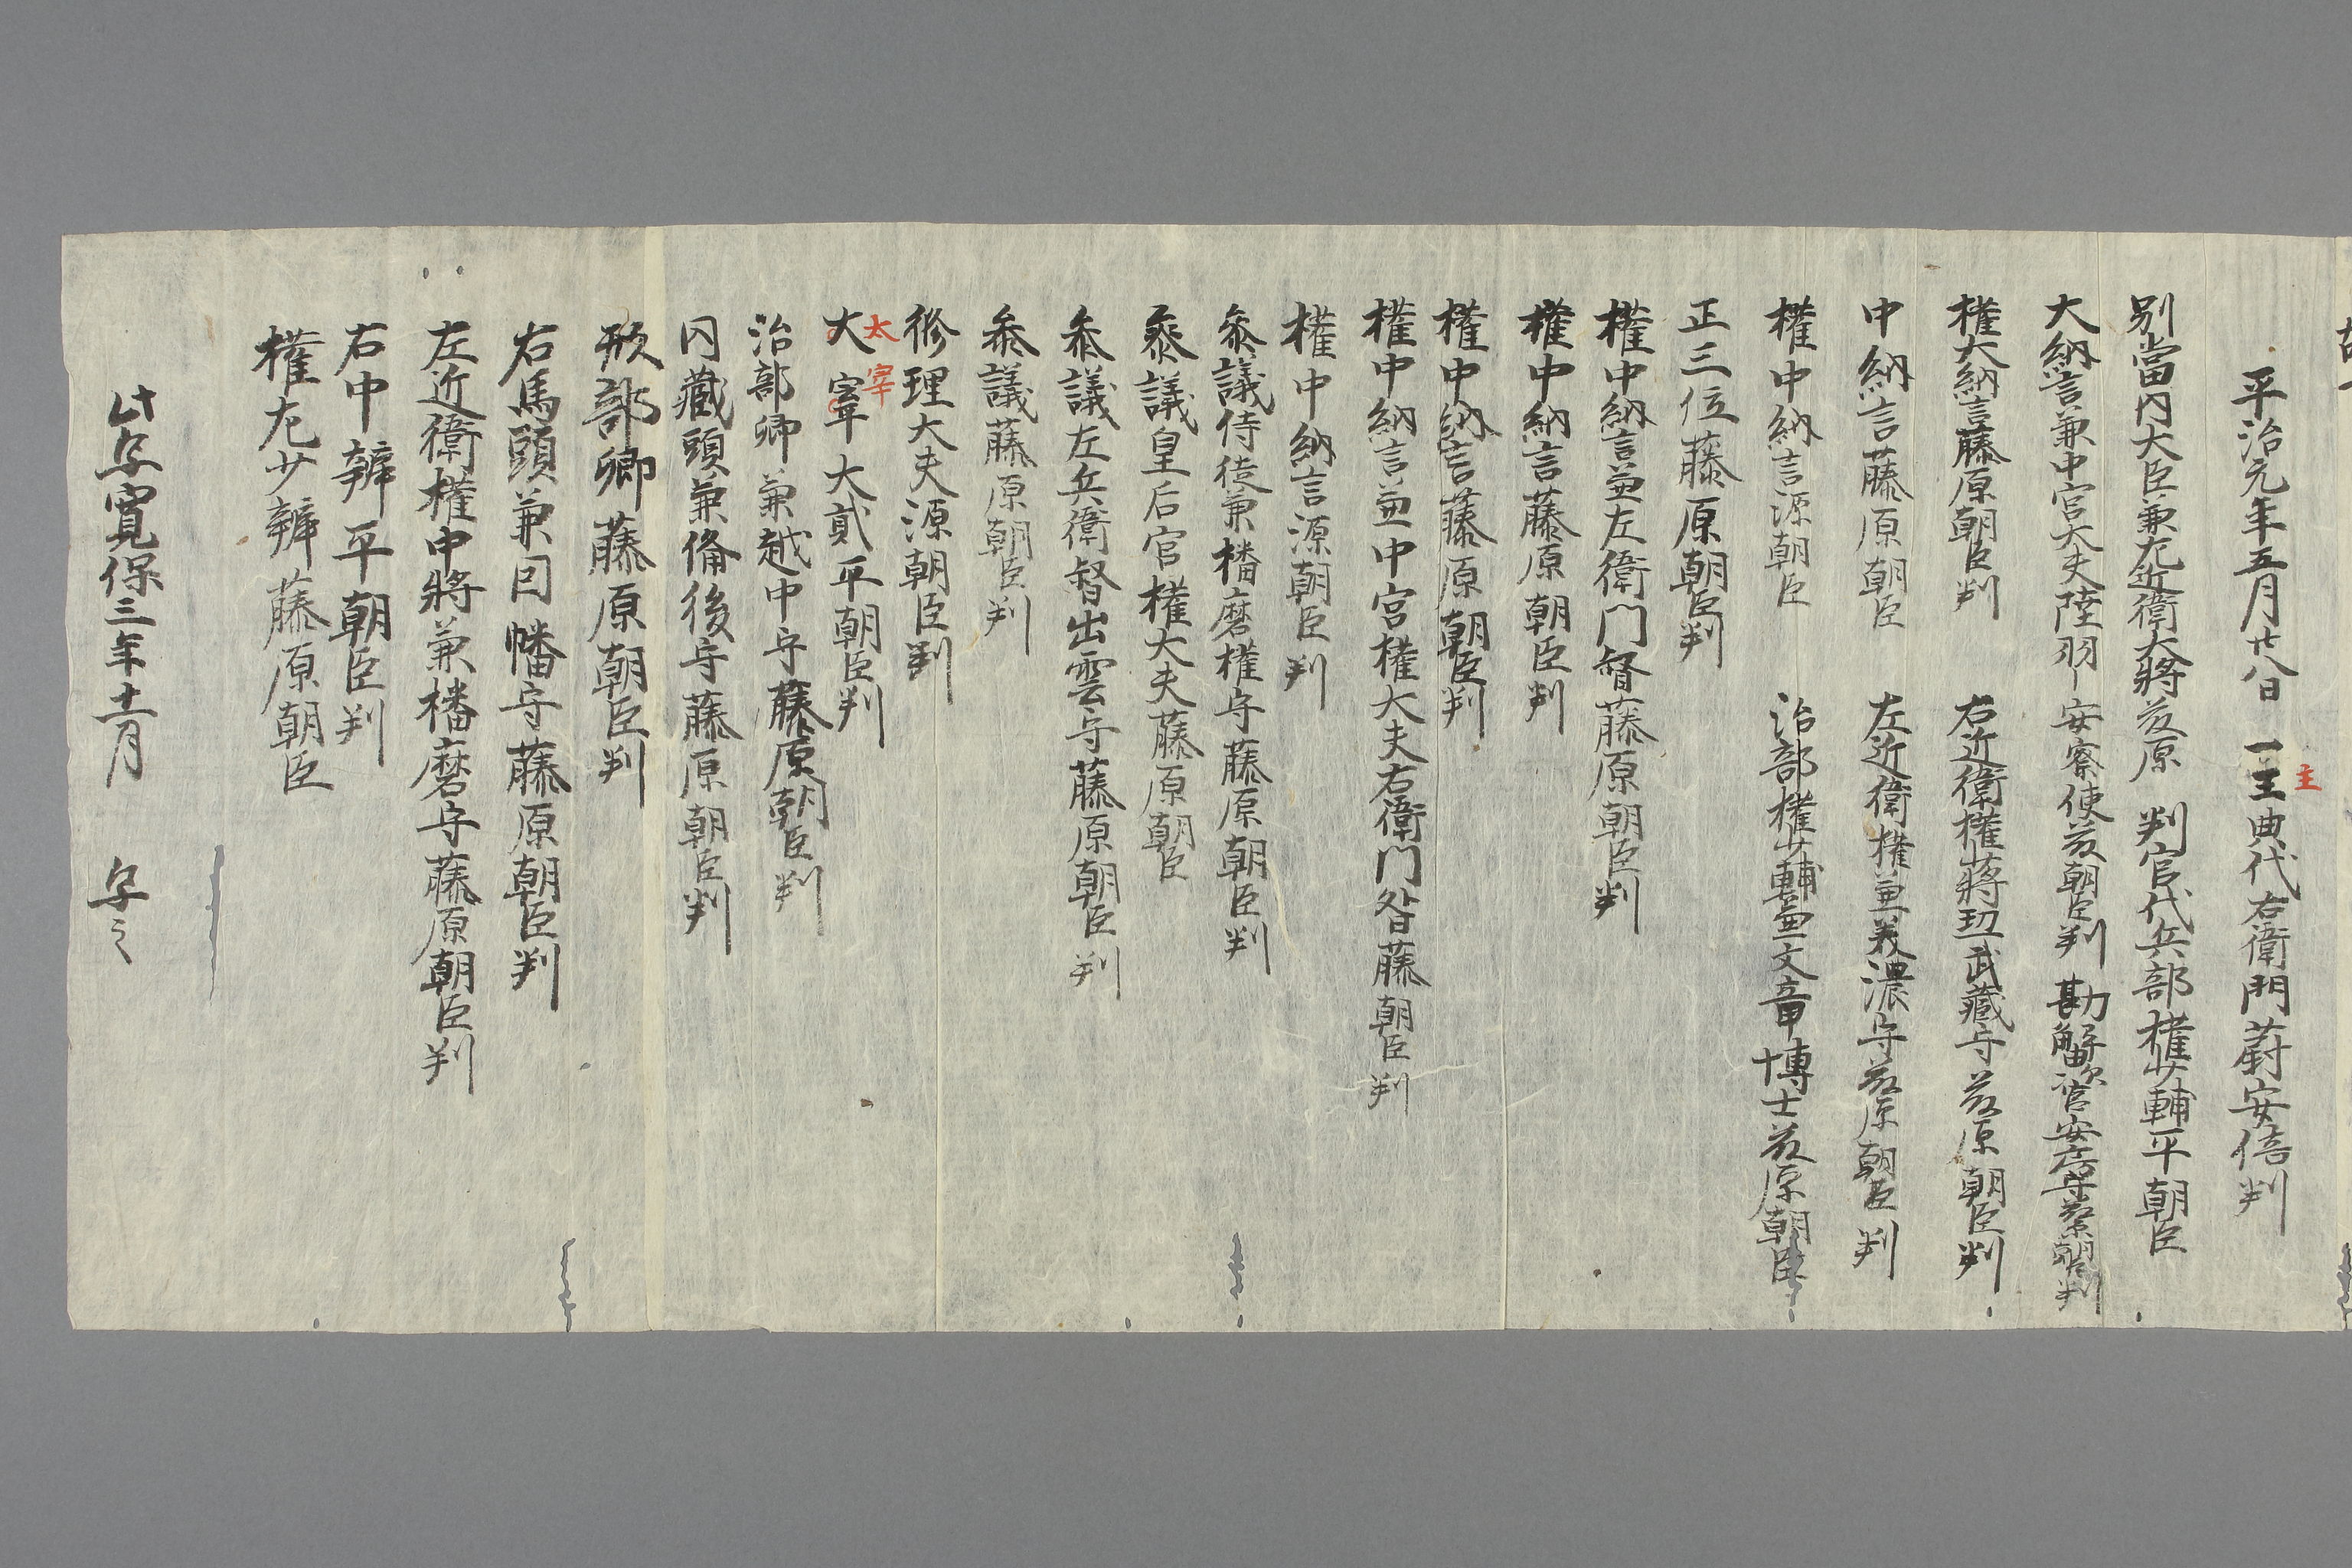 平治元年五月廿八日 一主典代右衛門蔚安倍判
主
別當内大臣兼左近衛大將苐原 判官代兵部權少輔平朝臣
大納言兼中宮大夫陸羽 安察使苐朝臣判 勘解次官安房守 朝臣判
權大納言藤原朝臣判 右近衛權蔣 武藏守苐原朝臣判
中納言藤原朝臣 左近衛權 兼義濃守苐原朝臣判
權中納言源朝臣 治部權少輔兼文章博士苐原朝臣
正三位藤原朝臣判
權中納言兼左衛門督藤原朝臣判
權中納言藤原朝臣判
權中納言藤原朝臣判
權中納言兼中宮權大夫右衛門督藤朝臣判
權中納言源朝臣判
叅議侍従兼播磨權守藤原朝臣判
叅議皇后宮權大夫藤原朝臣
叅議左兵衛督出雲守藤原朝臣判
叅議藤原朝臣判
修理大夫源朝臣判
太宰
大宰大貳平朝臣判
治部卿兼越中守藤原朝臣判
内藏頭兼備後守藤原朝臣判
刑部卿藤原朝臣判
右馬頭兼因幡守藤原朝臣判
左近衛權中將兼播磨守藤原朝臣判
右中辨平朝臣判
權左少辨藤原朝臣
此写寛保三年十一月 写之